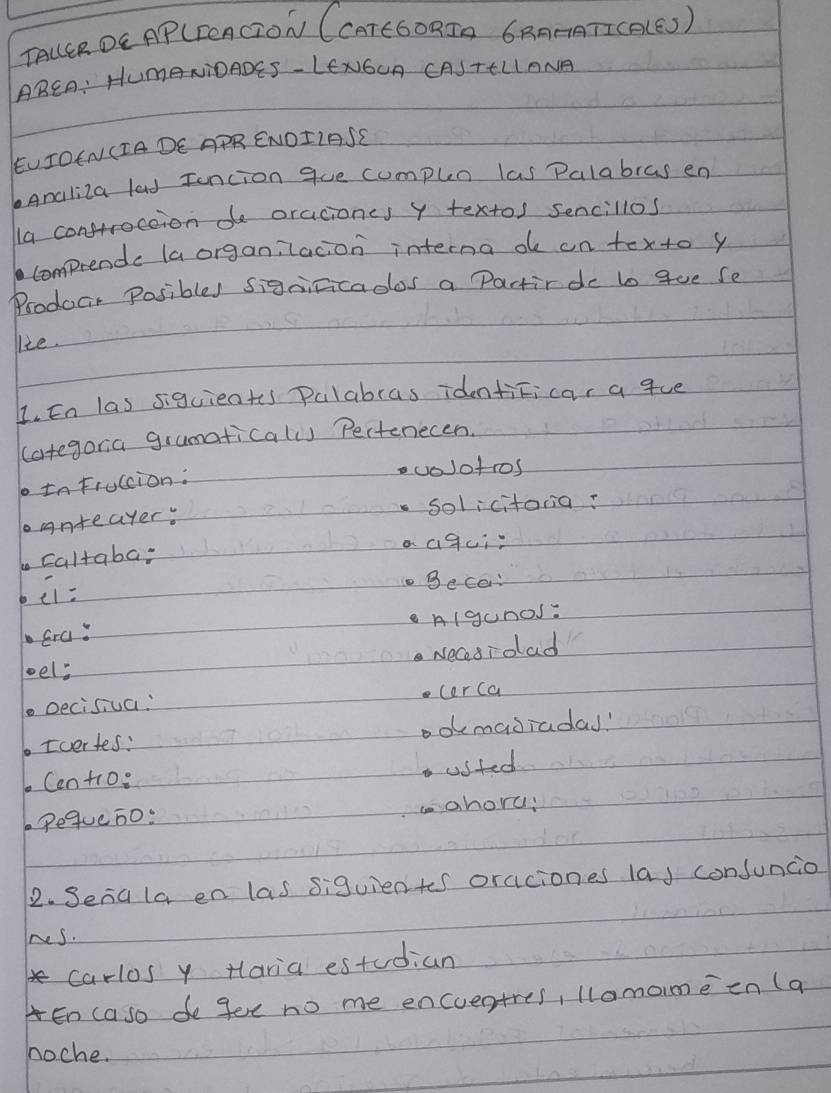 TALLER DE APLICACION (CATEGORIA GRAMATICALES)
AREA: HUMANIDADES - LENGUA CASTELLANA
EVIDENCIA DE APRENDIZASE
• Analiza las función que cumplen las Palabras en
la construccion de oraciones y textos sencillos
• comprende la organización interna de un texto y
Producir Posibles significados a Partir de lo que se
lee.
1. En las siguientes Palabras identificar a que
categoria gramaticales Pertenecen.
• Infruccion:
• vosotros
• Anteayer:
• solicitaria:
• Faltaba:
• aqui:
• él:
• Beca:
• Era:
• Algunos:
• el:
• Necesidad
• Decisiva:
• cerca
• Fuertes:
• demasiadas:
• Centro:
• usted
• Pequeño:
• ahora:
2. Señala en las siguientes oraciones las conjuncio
nes.
* Carlos y Maria estudian
* En caso de que no me encuentres, llamamé en la
noche.